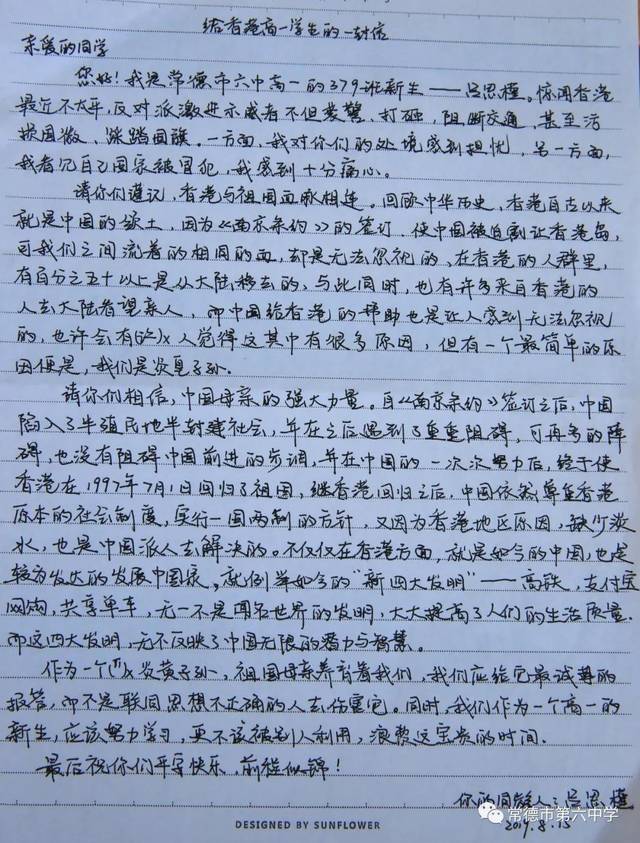 给香港高一学生的一封信
亲爱的同学
您好！我是常德市六中高一的379班新生——吕思槿。惊闻香港
最近不太平，反对派激进示威者不但袭警、打砸、阻断交通，甚至污
损国徽、踩踏国旗。一方面，我对你们的处境感到担忧，另一方面，
我看见自己国家被冒犯，我感到十分痛心。
请你们谨记，香港与祖国血脉相连。回顾中华历史，香港自古以来
就是中国的领土，因为《南京条约》的签订，使中国被迫割让香港岛，
可我们之间流着的相同的血，却是无法忽视的，在香港的人群里，
有百分之五十以上是从大陆移去的，与此同时，也有许多来自香港的
人去大陆看望亲人，而中国给香港的帮助也是让人感到无法忽视
的，也许会有人觉得这其中有很多原因，但有一个最简单的原
因便是，我们是炎皇子孙。
请你们相信，中国母亲的强大力量。自《南京条约》签订之后，中国
陷入了半殖民地半封建社会，并在之后遇到了重重阻碍，可再多的障
碍，也没有阻碍中国前进的步调，并在中国的一次次努力后，终于使
香港在1997年7月1日回归了祖国，继香港回归之后，中国依然尊重香港
原本的社会制度，实行一国两制的方针，又因为香港地区原因，缺少淡
水，也是中国派人去解决的。不仅仅在香港方面，就是如今的中国，也是
较为发达的发展中国家，就例举如今的“新四大发明”——高铁，支付宝
网购，共享单车，无一不是闻名世界的发明，大大提高了人们的生活质量.
而这四大发明，无不反映了中国无限的潜力与智慧。
作为一个炎黄子孙，祖国母亲养育着我们，我们应给它最诚挚的
报答，而不是联同思想不正确的人去伤害它。同时，我们作为一个高一的
新生，应该努力学习，更不该被别人利用，浪费这宝贵的时间.
最后祝你们平安快乐，前程似锦！
你的同龄人：吕思槿
2019.8.15
常德市第六中学
DESIGNED BY SUNFLOWER